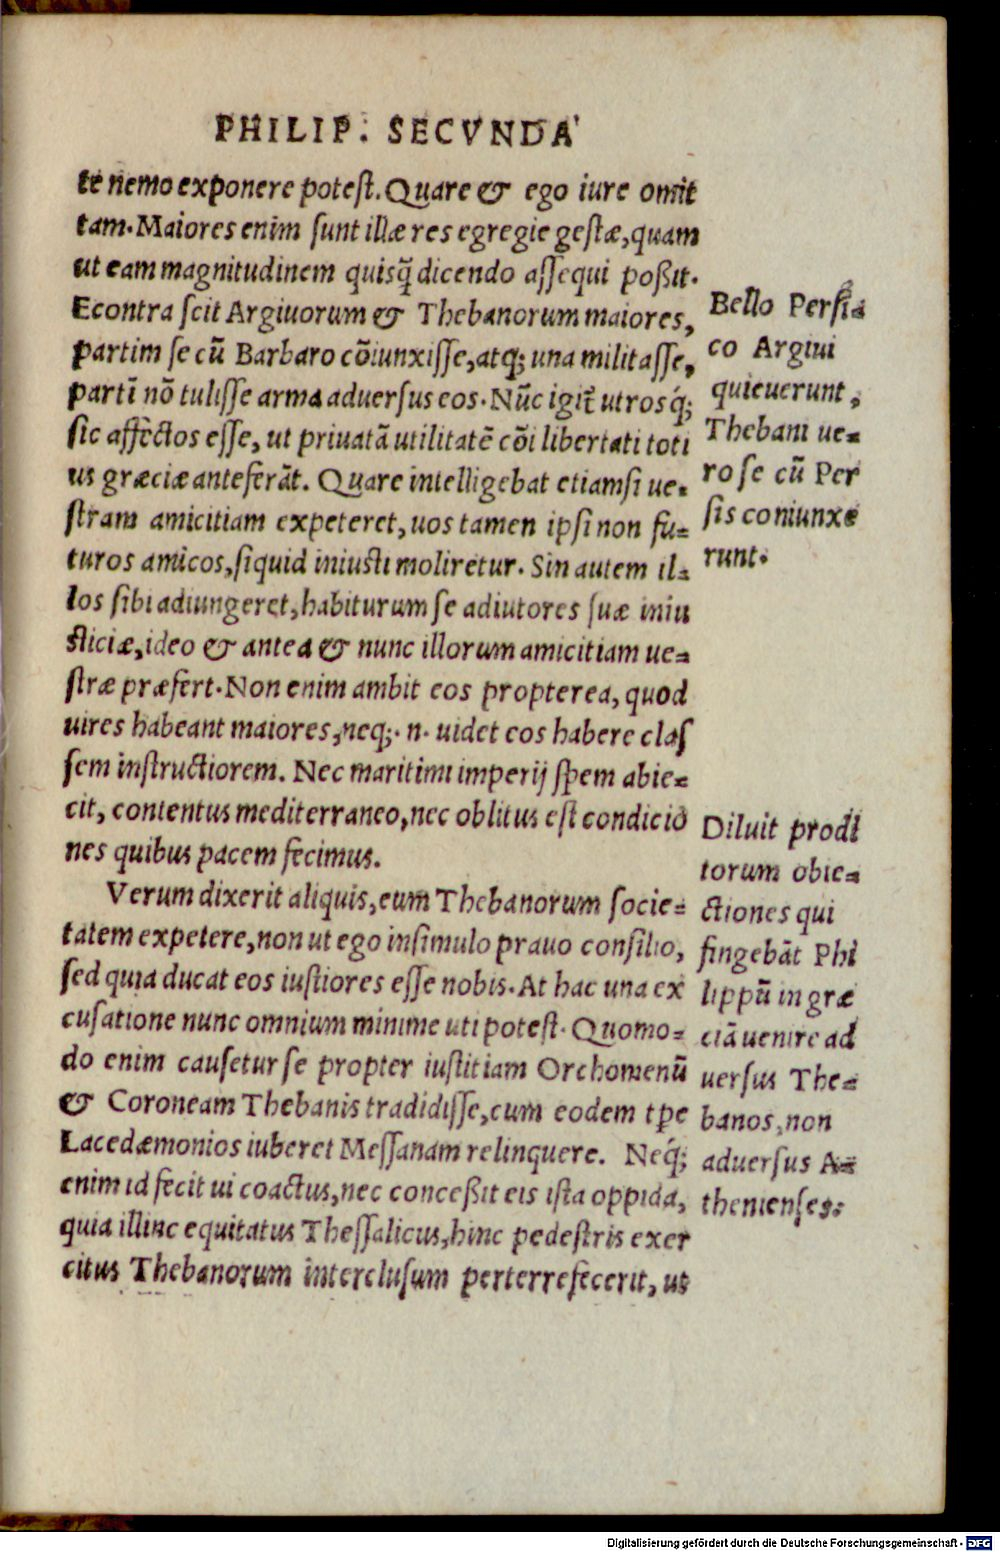 PHILIP. SECVNDA
te nemo exponere potest. Quare & ego iure omit
tam. Maiores enim sunt illæ res egregie gestæ, quam
ut eam magnitudinem quisq̃ dicendo assequi poßit.
Econtra scit Argiuorum & Thebanorum maiores,
partim se cũ Barbaro cõiunxisse, atq; una militasse,
partĩ nõ tulisse arma aduersus eos. Nũc igit̃ utrosq́;
sic affectos esse, ut priuatã utilitatẽ cõi libertati toti
us græciæ anteferãt. Quare intelligebat etiamsi ue-
stram amicitiam expeteret, uos tamen ipsi non fu-
turos amicos, siquid iniusti moliretur. Sin autem il-
los sibi adiungeret, habiturum se adiutores suæ iniu
sticiæ, ideo & antea & nunc illorum amicitiam ue-
stræ præfert. Non enim ambit eos propterea, quod
uires habeant maiores, neq;. n. uidet eos habere clas
sem instructiorem. Nec maritimi imperij spem abie-
cit, contentus mediterraneo, nec oblitus est condicio
nes quibus pacem fecimus.
Verum dixerit aliquis, eum Thebanorum socie-
tatem expetere, non ut ego insimulo prauo consilio,
sed quia ducat eos iustiores esse nobis. At hac una ex
cusatione nunc omnium minime uti potest. Quomo-
do enim causetur se propter iustitiam Orchomenũ
& Coroneam Thebanis tradidisse, cum eodem tp̃e
Lacedæmonios iuberet Messanam relinquere. Neq́;
enim id fecit ui coactus, nec conceßit eis ista oppida,
quia illinc equitatus Thessalicus, hinc pedestris exer
citus Thebanorum interclusum perterrefecerit, ut
Bello Persi-
co Argiui
quieuerunt,
Thebani ue-
ro se cũ Per
sis coniunxe
runt.
Diluit prodi
torum obie-
ctiones qui
fingebãt Phi
lippũ in græ
ciã uenire ad
uersus The-
banos, non
aduersus A-
thenienses.
Digitalisierung gefördert durch die Deutsche Forschungsgemeinschaft - DFG